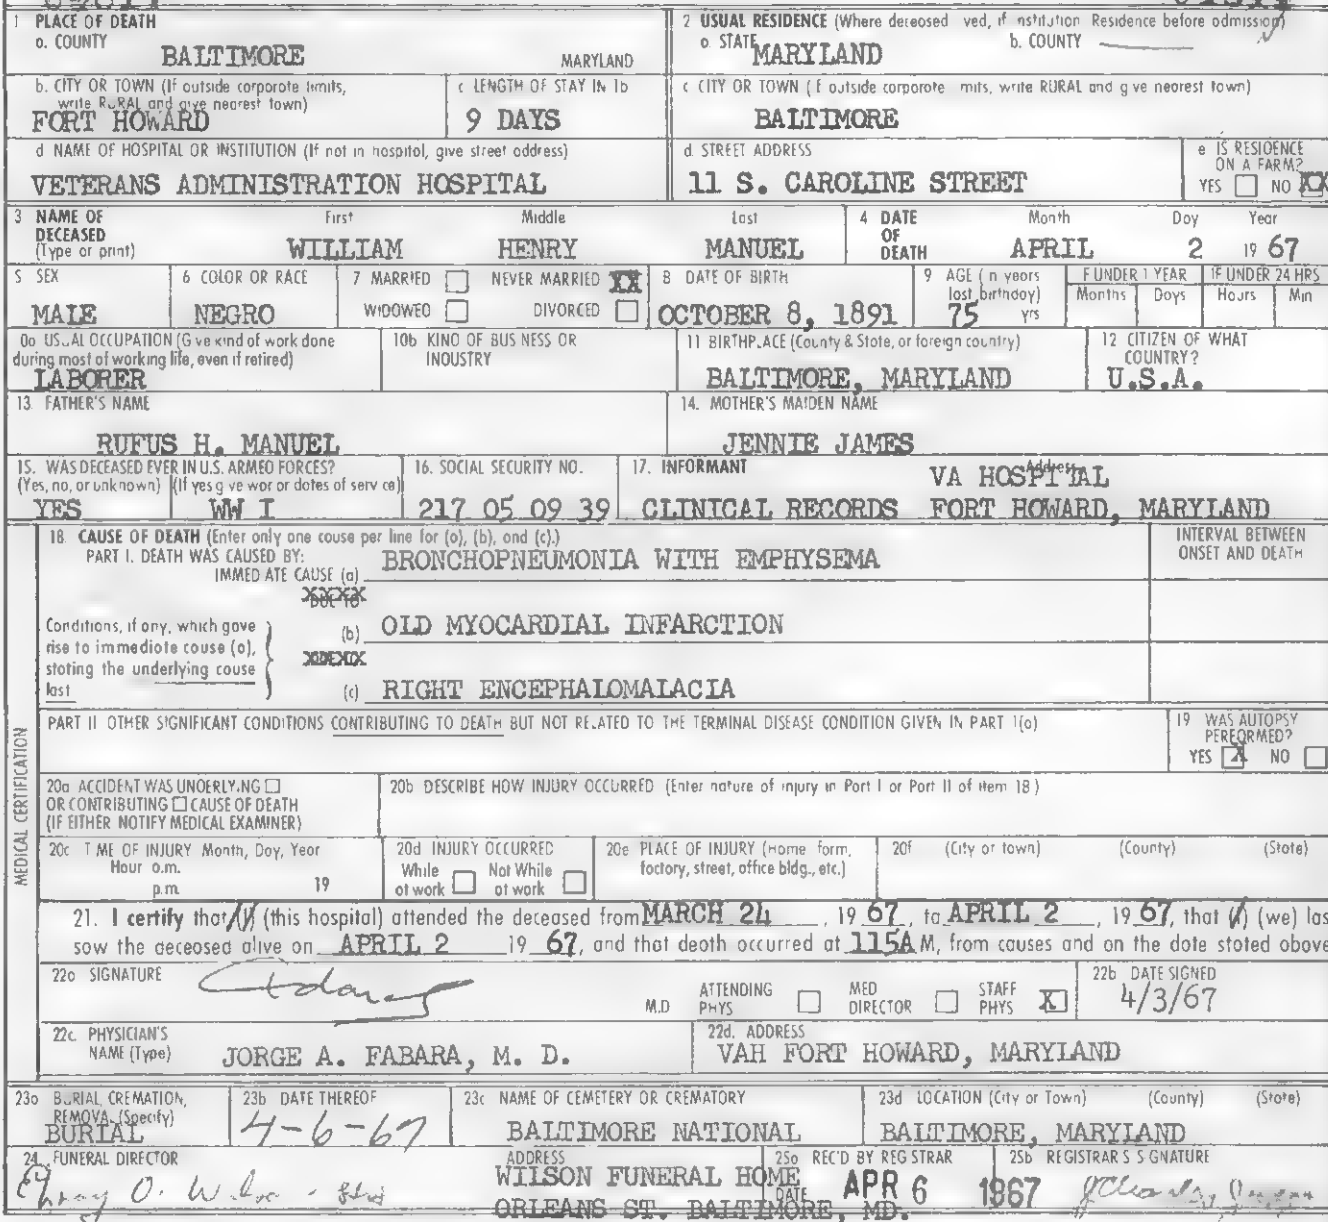 1 PLACE OF DEATH
a. COUNTY
BALTIMORE
MARYLAND
2 USUAL RESIDENCE (Where deceased ved, if nstitution Residence before admission)
a. STATE MARYLAND
b. COUNTY
b. CITY OR TOWN (If outside corporate limits,
write RURAL and give nearest town)
FORT HOWARD
c LENGTH OF STAY IN 1b
9 DAYS
c CITY OR TOWN ( f outside corporate mits, write RURAL and g ve nearest town)
BALTIMORE
d NAME OF HOSPITAL OR INSTITUTION (If not in hospital, give street address)
VETERANS ADMINISTRATION HOSPITAL
d. STREET ADDRESS
11 S. CAROLINE STREET
e IS RESIDENCE
ON A FARM?
YES NO XX
3 NAME OF
DECEASED
(Type or print)
First Middle Last
WILLIAM HENRY MANUEL
4 DATE
OF
DEATH
Month Day Year
APRIL 2 19 67
5 SEX
MALE
6 COLOR OR RACE
NEGRO
7 MARRIED NEVER MARRIED XX
WIDOWED DIVORCED
8 DATE OF BIRTH
OCTOBER 8, 1891
9 AGE ( n years
last birthday)
75 yrs
F UNDER 1 YEAR
Months Days
IF UNDER 24 HRS
Hours Min
0a US AL OCCUPATION (G ve kind of work done
during most of working life, even if retired)
LABORER
10b KIND OF BUS NESS OR
INDUSTRY
11 BIRTHPLACE (County & State, or foreign country)
BALTIMORE, MARYLAND
12 CITIZEN OF WHAT
COUNTRY?
U.S.A.
13. FATHER'S NAME
RUFUS H. MANUEL
14. MOTHER'S MAIDEN NAME
JENNIE JAMES
15. WAS DECEASED EVER IN U.S. ARMED FORCES?
(Yes, no, or unknown) (If yes g ve war or dates of serv ce)
YES WW I
16. SOCIAL SECURITY NO.
217 05 09 39
17. INFORMANT Address
VA HOSPITAL
CLINICAL RECORDS FORT HOWARD, MARYLAND
MEDICAL CERTIFICATION
18. CAUSE OF DEATH (Enter only one cause per line for (a), (b), and (c).)
PART I. DEATH WAS CAUSED BY:
IMMED ATE CAUSE (a) BRONCHOPNEUMONIA WITH EMPHYSEMA
INTERVAL BETWEEN
ONSET AND DEATH
Conditions, if any, which gave
rise to immediate cause (a),
stating the underlying cause
last
(b) OLD MYOCARDIAL INFARCTION
(c) RIGHT ENCEPHALOMALACIA
PART II OTHER SIGNIFICANT CONDITIONS CONTRIBUTING TO DEATH BUT NOT RELATED TO THE TERMINAL DISEASE CONDITION GIVEN IN PART 1(a)
19 WAS AUTOPSY
PERFORMED?
YES X NO
20a ACCIDENT WAS UNDERLYING
OR CONTRIBUTING CAUSE OF DEATH
(IF EITHER NOTIFY MEDICAL EXAMINER)
20b DESCRIBE HOW INJURY OCCURRED (Enter nature of injury in Part I or Part II of item 18)
20c T ME OF INJURY Month, Day, Year
Hour a.m.
p.m. 19
20d INJURY OCCURRED
While at work Not While at work
20e PLACE OF INJURY (Home form,
factory, street, office bldg., etc.)
20f (City or town) (County) (State)
21. I certify that (I) (this hospital) attended the deceased from MARCH 24, 19 67, to APRIL 2, 19 67, that (I) (we) las
saw the deceased alive on APRIL 2 19 67, and that death occurred at 115A M, from causes and on the date stated above
22a SIGNATURE
M.D
ATTENDING
PHYS
MED
DIRECTOR
STAFF
PHYS X
22b DATE SIGNED
4/3/67
22c. PHYSICIAN'S
NAME (Type) JORGE A. FABARA, M. D.
22d. ADDRESS
VAH FORT HOWARD, MARYLAND
23a BURIAL, CREMATION,
REMOVAL (Specify)
BURIAL
23b DATE THEREOF
4-6-67
23c NAME OF CEMETERY OR CREMATORY
BALTIMORE NATIONAL
23d LOCATION (City or Town) (County) (State)
BALTIMORE, MARYLAND
24 FUNERAL DIRECTOR
ADDRESS
WILSON FUNERAL HOME
ORLEANS ST. BALTIMORE, MD.
25a REC'D BY REG STRAR
DATE APR 6 1967
25b REGISTRAR'S S GNATURE